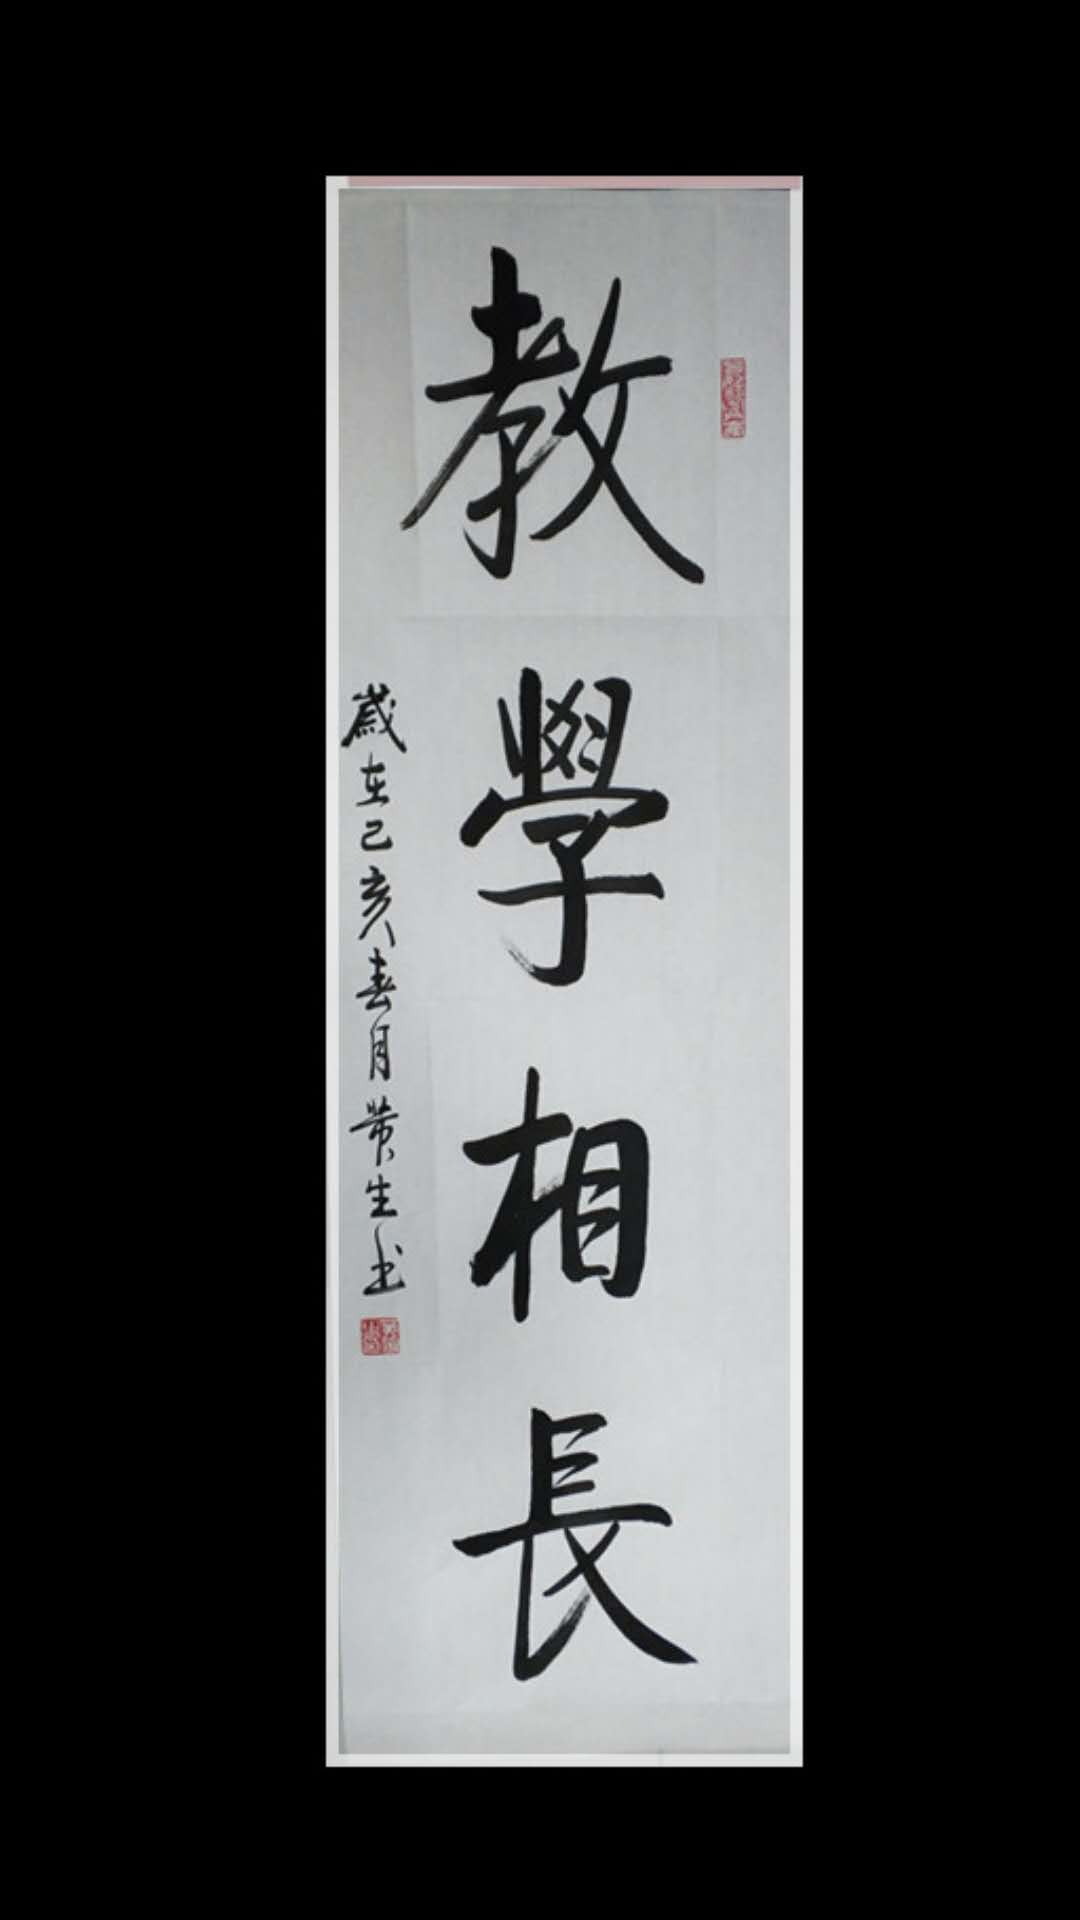 教學相長
歲在己亥春月黄生书